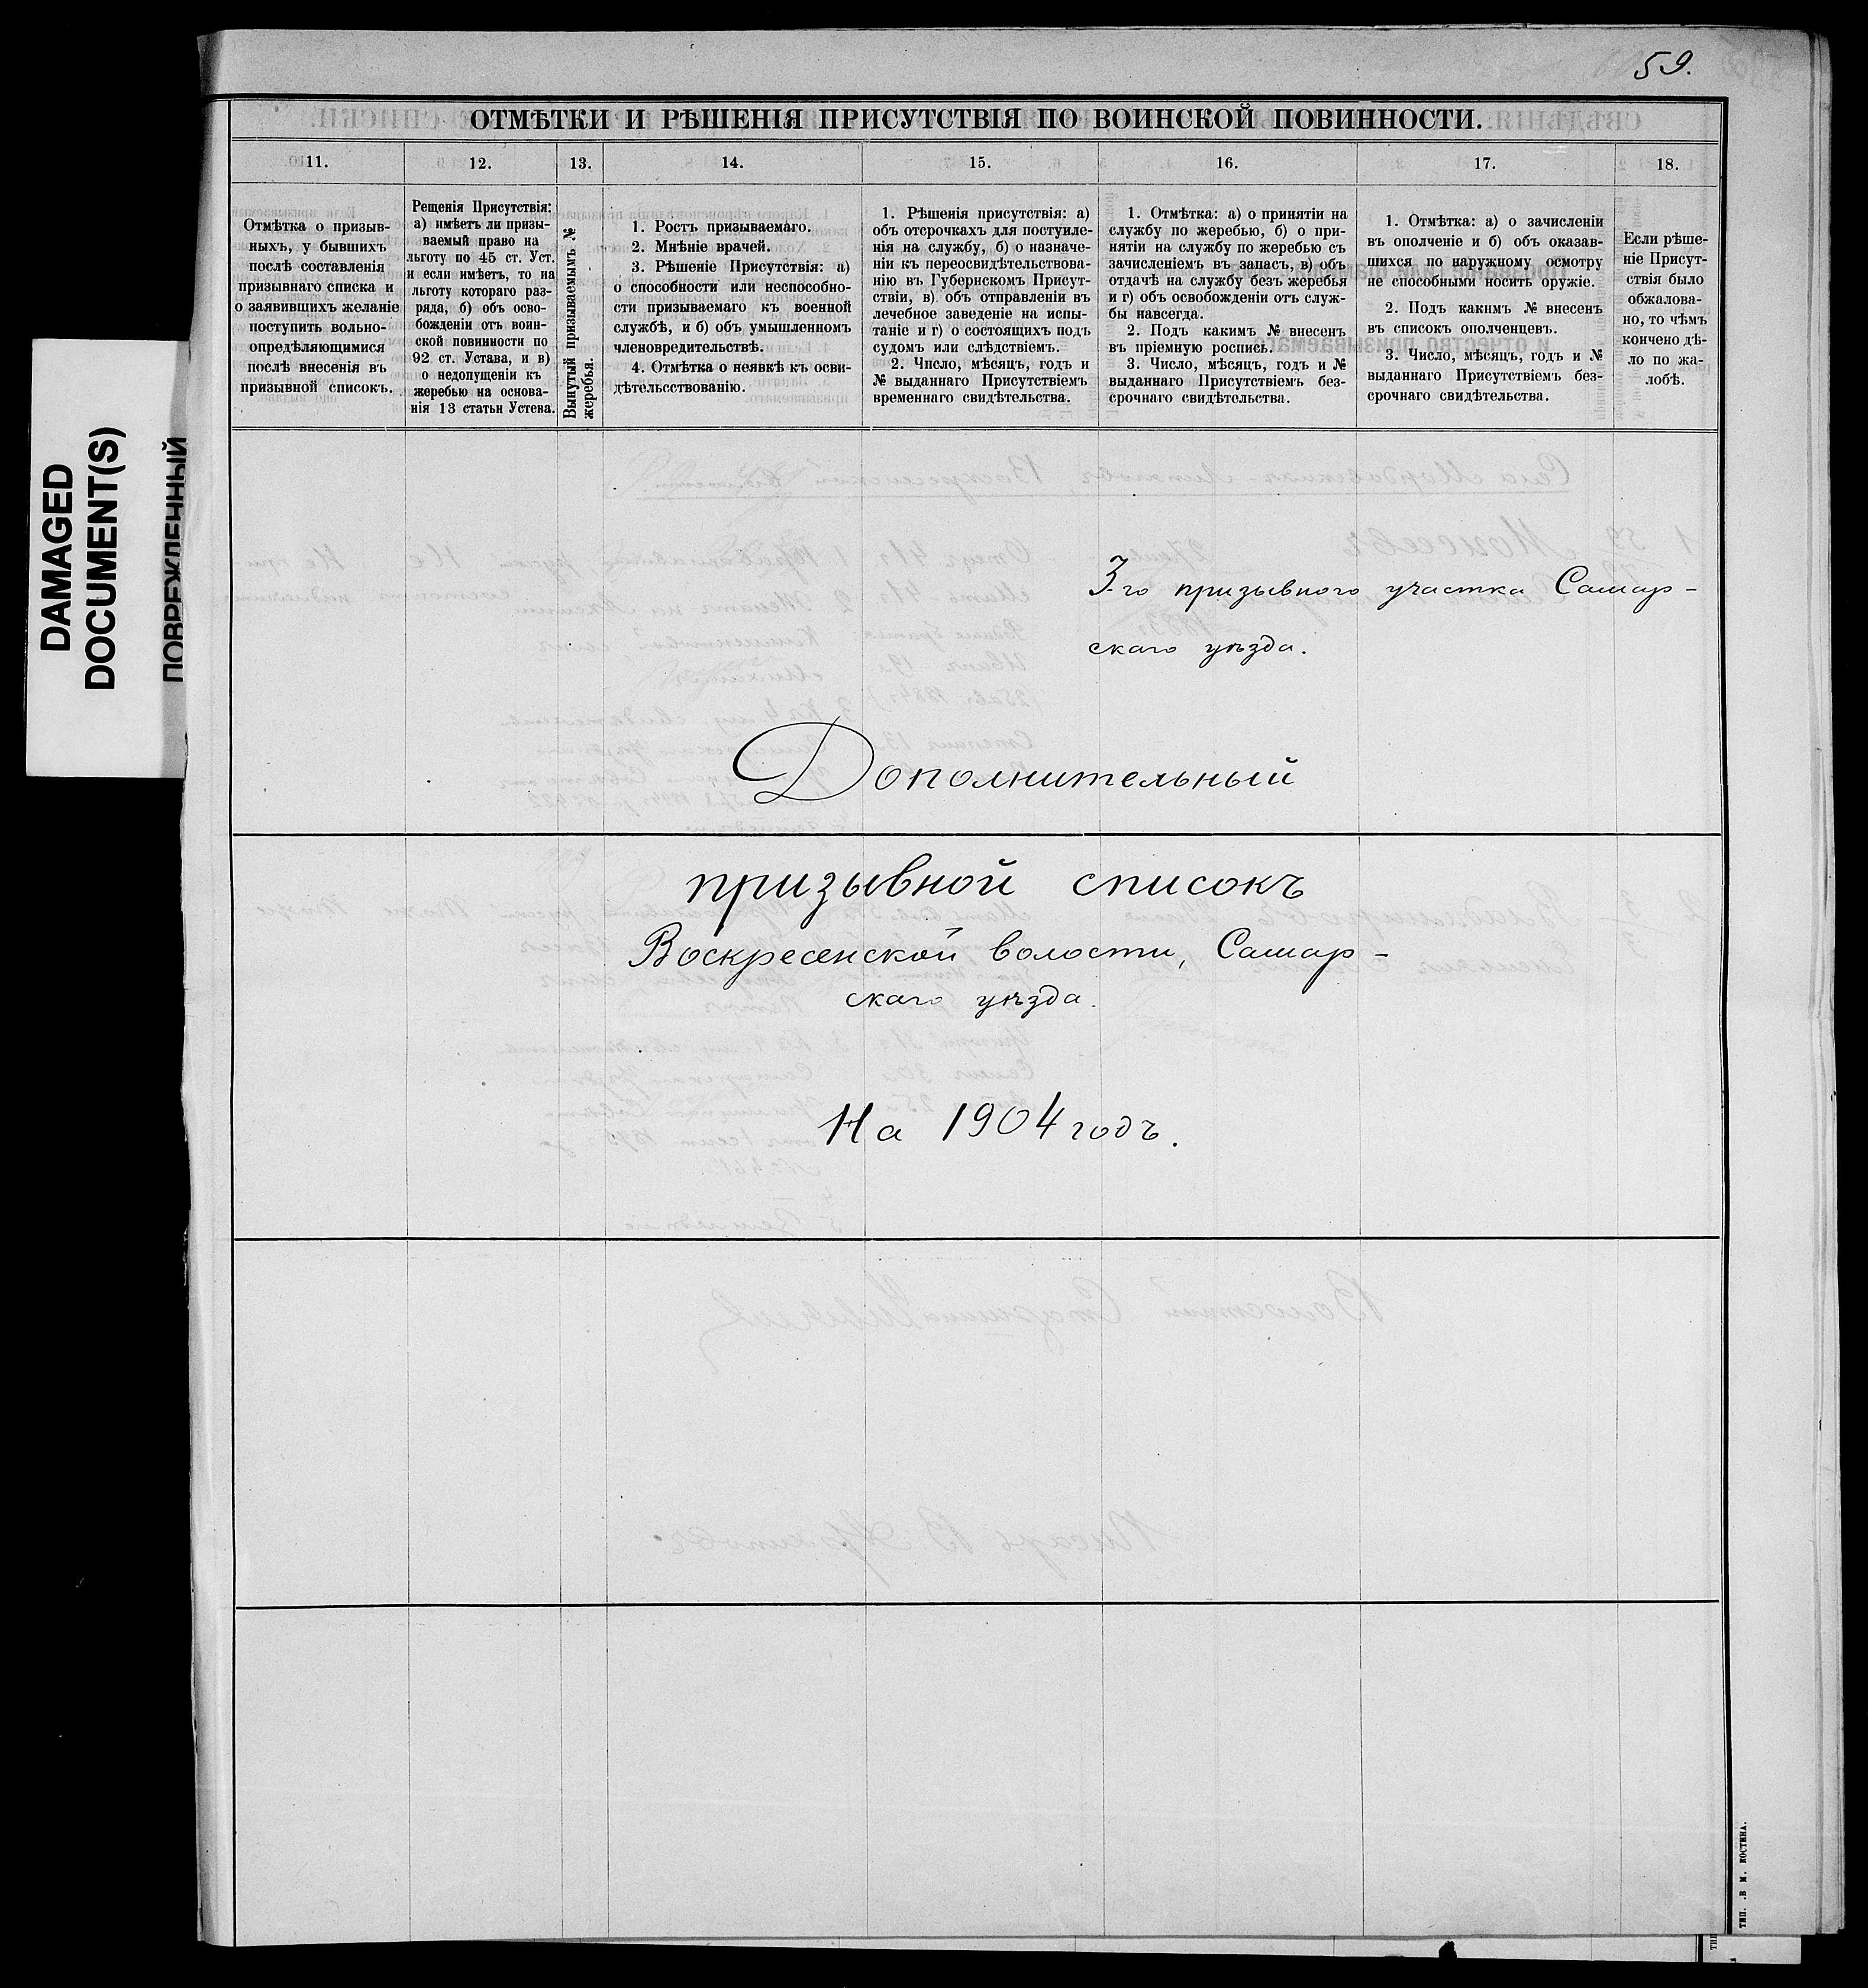 59.
ОТМѢТКИ И РѢШЕНІЯ ПРИСУТСТВІЯ ПО ВОИНСКОЙ ПОВИННОСТИ.
11.
12.
13.
14.
15.
16.
17.
18.
Отмѣтка о призыв-
ныхъ, у бывшихъ
послѣ составленія
призывнаго списка и
о заявившихъ желаніе
поступить вольно-
опредѣляющимися
послѣ внесенія въ
призывной списокъ.
Рещенія Присутствія:
а) имѣетъ ли призы-
ваемый право на
льготу по 45 ст. Уст.
и если имѣетъ, то на
льготу котораго раз-
ряда, б) объ осво-
божденіи отъ воин-
ской повинности по
92 ст. Устава, и в)
о недопущеніи къ
жеребью на основа-
нія 13 статьи Устева.
Вынутый призываемымъ №
жеребья.
1. Ростъ призываемаго.
2. Мнѣніе врачей.
3. Рѣшеніе Присутствія: а)
о способности или неспособно-
сти призываемаго къ военной
службѣ, и б) объ умышленномъ
членовредительствѣ.
4. Отмѣтка о неявкѣ къ осви-
дѣтельсствованію.
1. Рѣшенія присутствія: а)
объ отсрочкахъ для поступле-
нія на службу, б) о назначе-
ніи къ переосвидѣтельствова-
нію въ Губернскомъ Присут-
ствіи, в) объ отправленіи въ
лечебное заведеніе на испы-
таніе и г) о состоящихъ подъ
судомъ или слѣдствіемъ.
2. Число, мѣсяцъ, годъ и
№ выданнаго Присутствіемъ
временнаго свидѣтельства.
1. Отмѣтка: а) о принятіи на
службу по жеребью, б) о при-
нятіи на службу по жеребью съ
зачисленіемъ въ запасъ, в) объ
отдачѣ на службу безъ жеребья
и г) объ освобожденіи отъ служ-
бы навсегда.
2. Подъ какимъ № внесенъ
въ пріемную роспись.
3. Число, мѣсяцъ, годъ и №
выданнаго Присутствіемъ без-
срочнаго свидѣтельства.
1. Отмѣтка: а) о зачисленіи
въ ополченіе и б) объ оказав-
шихся по наружному осмотру
не способными носить оружіе.
2. Подъ какимъ № внесенъ
въ списокъ ополченцевъ.
3. Число, мѣсяцъ, годъ и №
выданнаго Присутствіемъ без-
срочнаго свидѣтельства.
Если рѣше-
ніе Присут-
ствія было
обжалова-
но, то чѣмъ
кончено дѣ-
ло по жа-
лобѣ.
DAMAGED
DOCUMENT(S)
ПОВРЕЖДЕННЫЙ
3-го призывного участка Самар-
скаго уѣзда.
Дополнительный
призывной списокъ
Воскресенской волости, Самар-
скаго уѣзда.
На 1904 годъ.
ТИП. .В М. КОСТИНА.